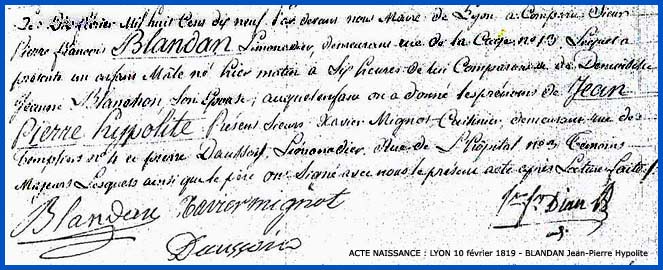 Le Dix février Mil huit Cens dix neuf par devant nous Maire de Lyon a Comparu Sieur
Pierre francois BLANDAN Limonadier, demeurant rue de la Cage no 13 Lequel a
présenté un enfant Mâle né hier matin à Six heures de lui Comparant et de Demoiselle
Jeanne Blanchon Son Epouse; auquel enfant on a donné les prénoms de JEAN
PIERRE hypolite Présens Sieurs Xavier Mignot Cuisinier, demeurant rue des
templiers no 4 et pierre Daussoir, Limonadier, Rue de l'hôpital no 3 Témoins
Majeurs Lesquels ainsi que le père ont Signé avec nous le présent acte après Lecture faite.
Blandan Xavier mignot
Daussoir
ACTE NAISSANCE : LYON 10 février 1819 - BLANDAN Jean-Pierre Hypolite